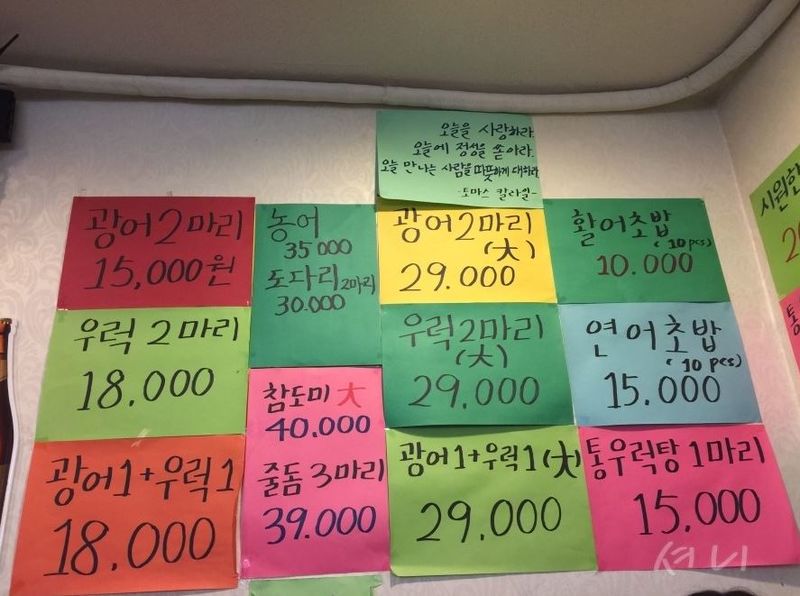 오늘을 사랑하라.
오늘에 정성을 쏟아라.
오늘 만나는 사람을 따뜻하게 대하라
-토마스 칼라일-
광어 2마리
15,000원
농어
35000
도다리 2마리
30.000
광어 2마리
(大)
29.000
활어초밥
(10pcs)
10.000
우럭 2마리
18.000
우럭2마리
(大)
29.000
연어초밥
(10 pcs)
15.000
참도미 大
40.000
줄돔 3마리
39.000
광어1+우럭1
18.000
광어1+우럭1(大)
29.000
통우럭탕 1마리
15.000
시원한
통
셔니